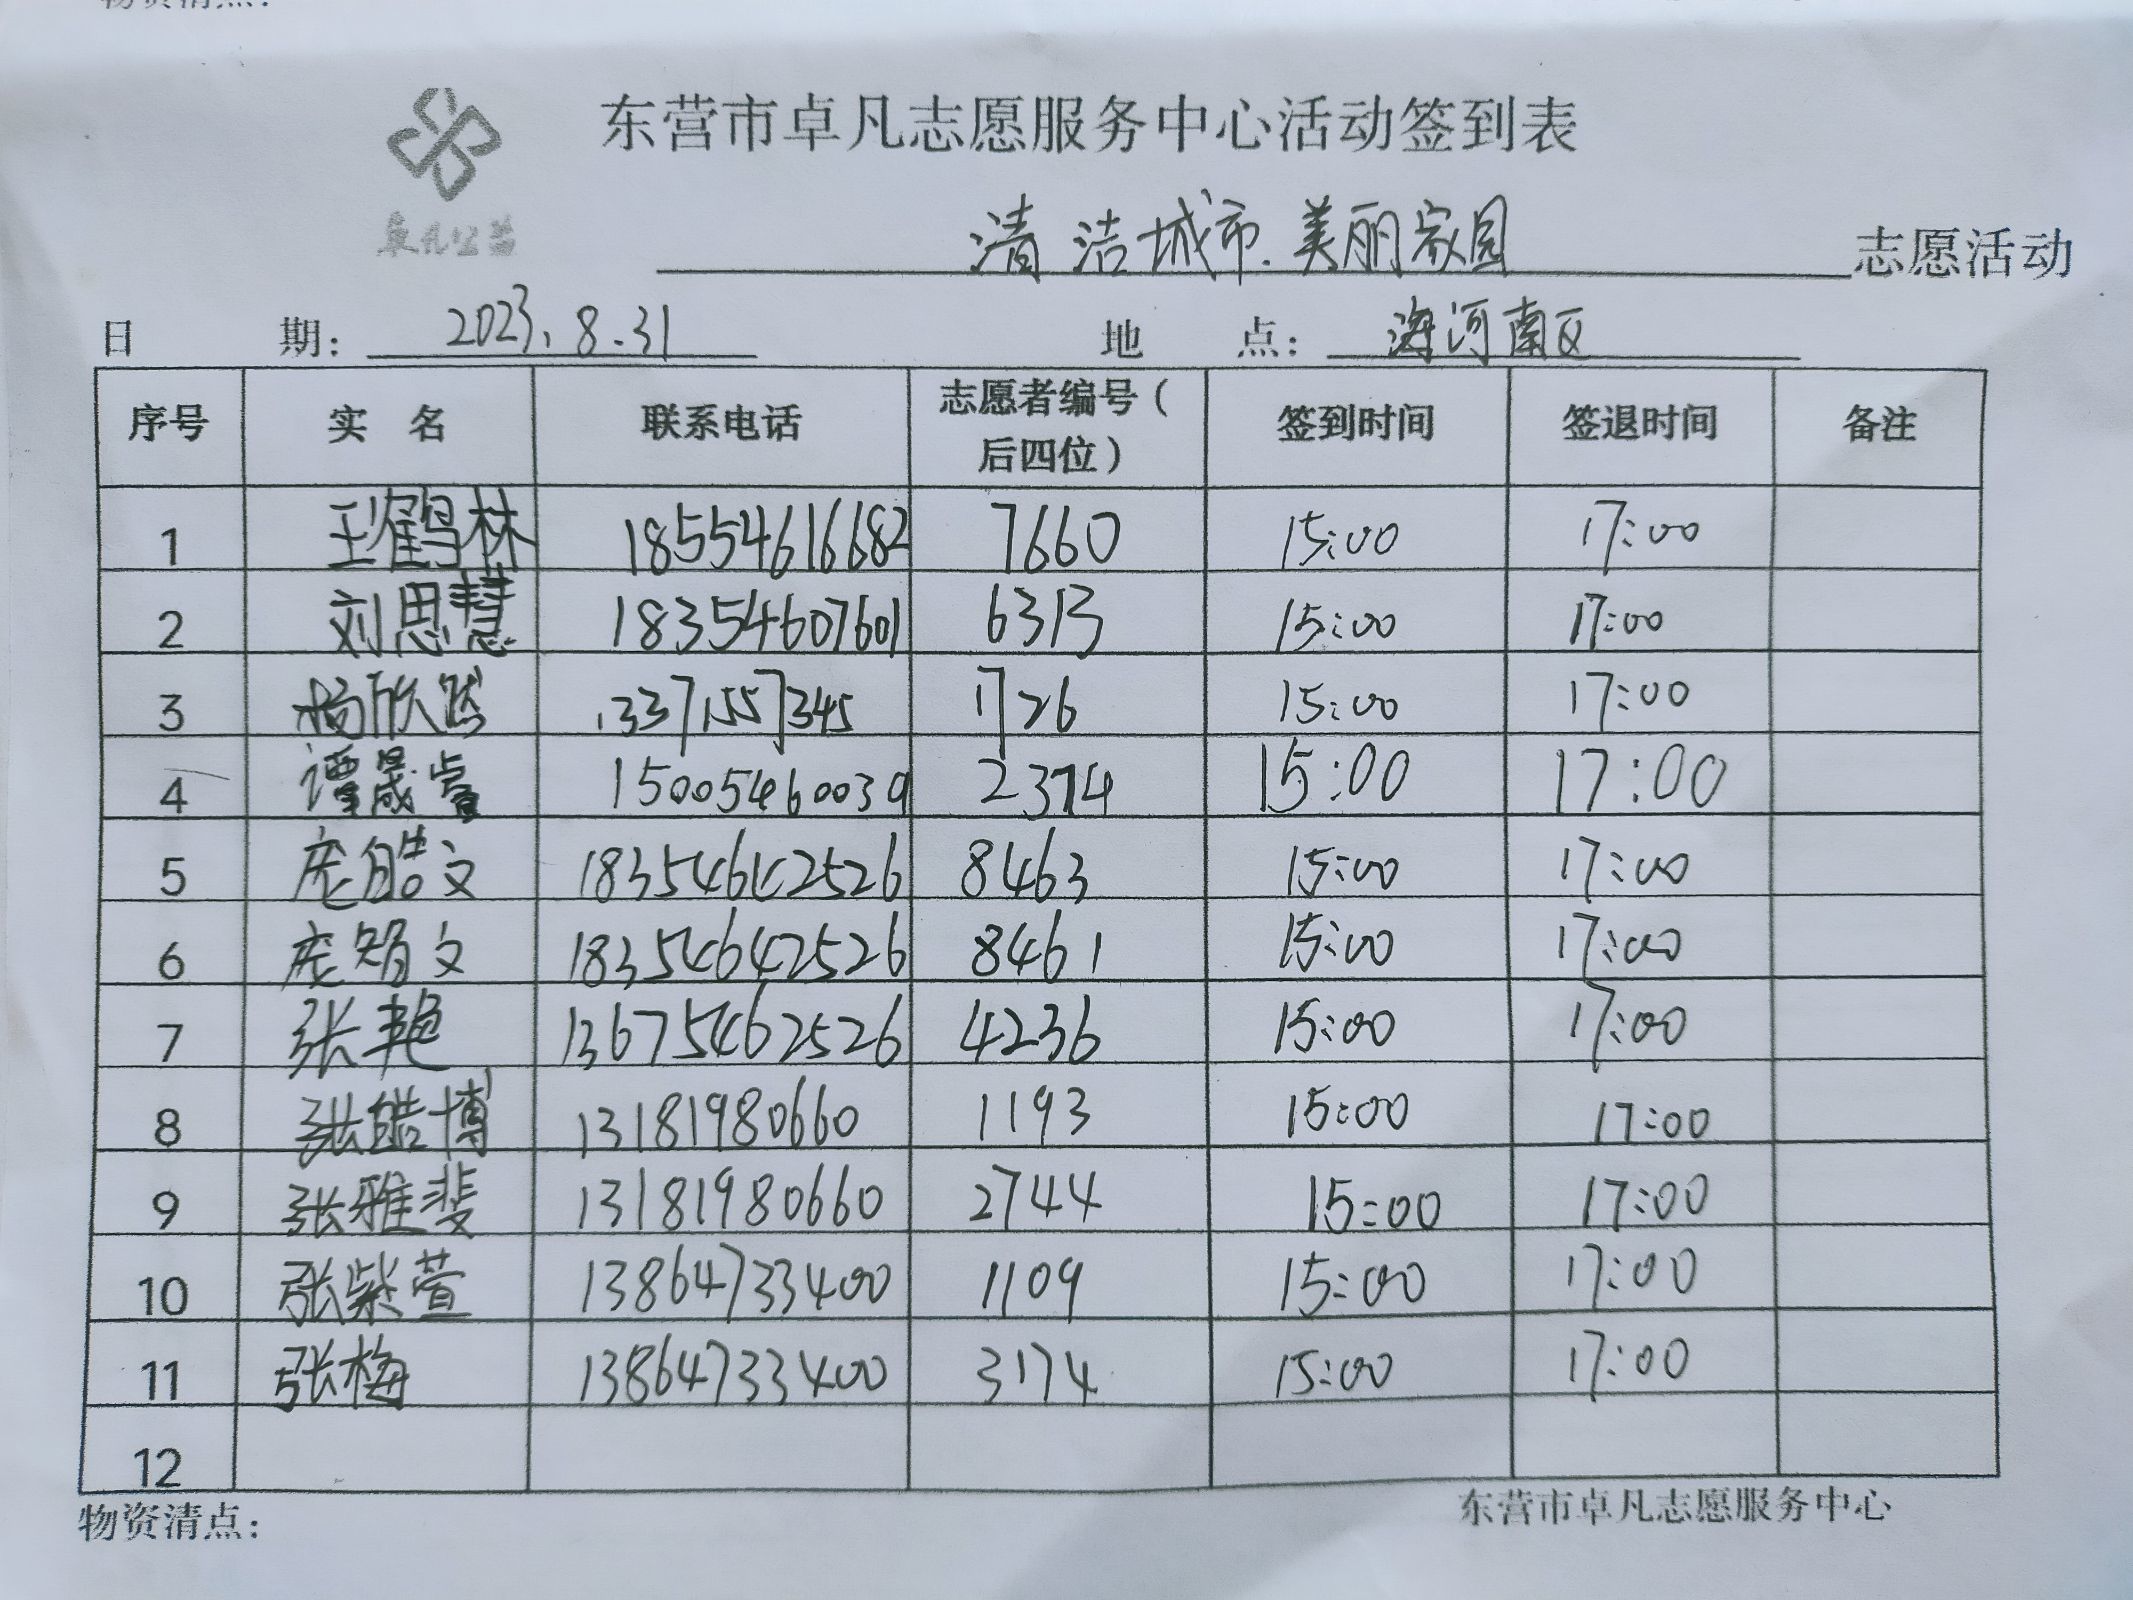 东营市卓凡志愿服务中心活动签到表
卓凡公益
清洁城市.美丽家园 志愿活动
日 期: 2023.8.31 地 点: 海河南区
序号 实 名 联系电话 志愿者编号(后四位) 签到时间 签退时间 备注
1 王鹤林 18554616682 7660 15:00 17:00
2 刘思慧 18354607601 6313 15:00 17:00
3 杨欣然 13371557345 1726 15:00 17:00
4 谭晟睿 15005460039 2374 15:00 17:00
5 庞皓文 18354642526 8463 15:00 17:00
6 庞娟文 18354642526 8461 15:00 17:00
7 张艳 13675462526 4236 15:00 17:00
8 张皓博 13181980660 1193 15:00 17:00
9 张雅斐 13181980660 2744 15:00 17:00
10 张紫萱 13864733400 1109 15:00 17:00
11 张梅 13864733400 3174 15:00 17:00
12
物资清点: 东营市卓凡志愿服务中心